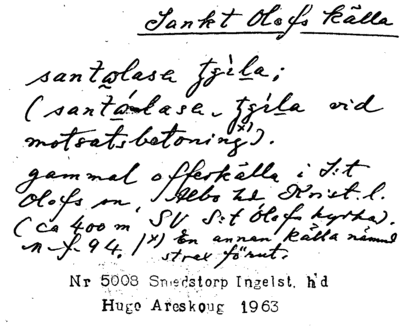 Sankt Olofs källa
santolasa tgila;
(santálasa, tgila vid
motsatsbetoning)x).
gammal offerkälla i S:t
Olofs sn, Albo hd Krist. l.
(ca 400 m SV S:t Olofs kyrka).
n. f. 94. /x) En annan källa nämnd
strax förut.
Nr 5008 Smedstorp Ingelst. h'd
Hugo Areskoug 1963